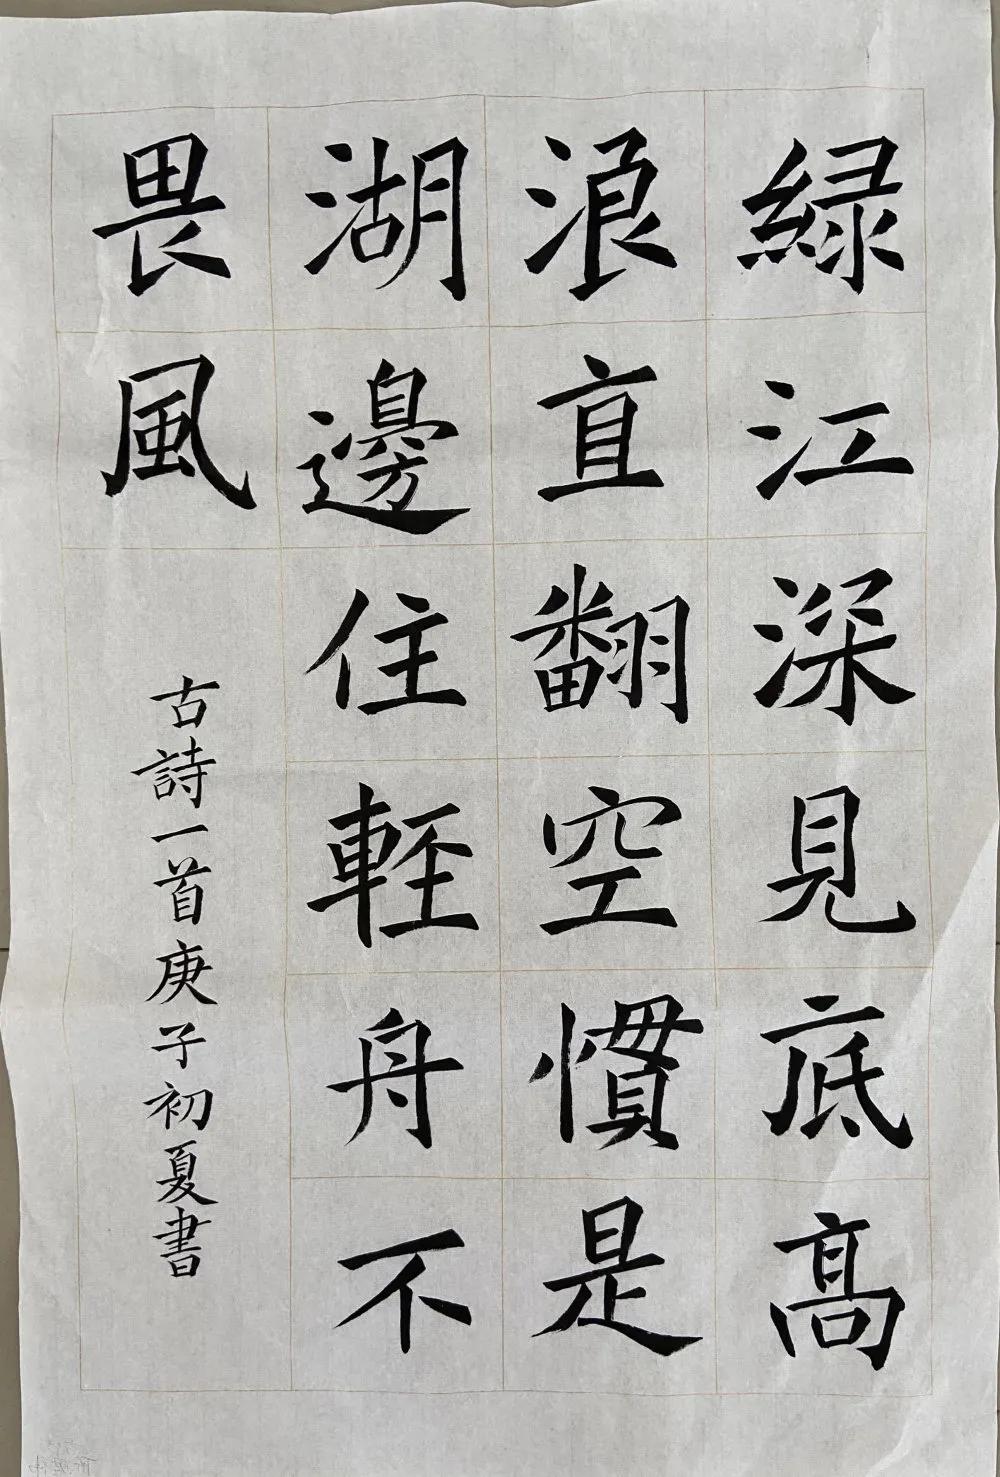 綠江深見底高
浪直翻空慣是
湖邊住輕舟不
畏風
古詩一首庚子初夏書